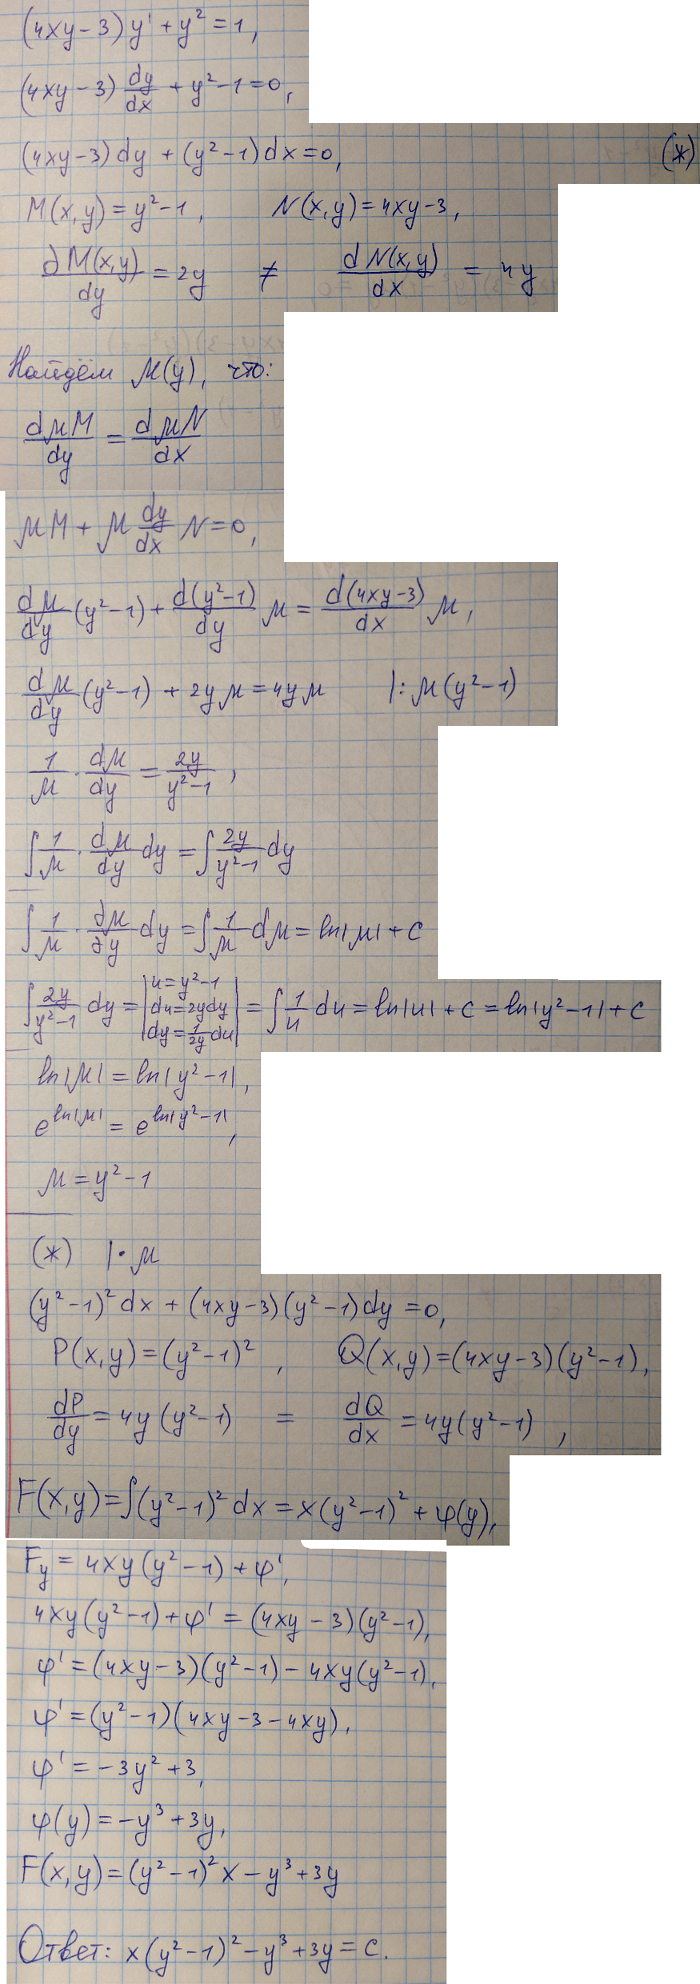 (4xy-3)y' + y² = 1,
(4xy-3) dy/dx + y²-1=0,
(4xy-3)dy + (y²-1)dx=0, (ж)
M(x,y)=y²-1, N(x,y)=4xy-3,
∂M(x,y)/dy = 2y ≠ dN(x,y)/dx = 4y
Найдём μ(y), что:
dμM/dy = dμN/dx
μM + μ dy/dx N=0,
dμ/dy (y²-1) + d(y²-1)/dy μ = d(4xy-3)/dx μ,
dμ/dy (y²-1) + 2yμ=4yμ |: μ(y²-1)
1/μ · dμ/dy = 2y/(y²-1),
∫ 1/μ · dμ/dy dy = ∫ 2y/(y²-1) dy
∫ 1/μ · ∂μ/∂y dy = ∫ 1/μ dμ = ln|μ| + c
∫ 2y/(y²-1) dy = |u=y²-1 du=2ydy dy=1/2y du| = ∫ 1/u du = ln|u| + c = ln|y²-1| + c
ln|μ| = ln|y²-1|,
e^ln|μ| = e^ln|y²-1|,
μ = y²-1
(ж) |· μ
(y²-1)²dx + (4xy-3)(y²-1)dy =0,
P(x,y)=(y²-1)², Q(x,y)=(4xy-3)(y²-1),
dP/dy = 4y(y²-1) = dQ/dx = 4y(y²-1),
F(x,y)=∫(y²-1)²dx = x(y²-1)² + φ(y),
Fy = 4xy(y²-1) + φ',
4xy(y²-1) + φ' = (4xy-3)(y²-1),
φ' = (4xy-3)(y²-1) - 4xy(y²-1),
φ' = (y²-1)(4xy-3-4xy),
φ' = -3y² + 3,
φ(y) = -y³ + 3y,
F(x,y) = (y²-1)²x - y³ + 3y
Ответ: x(y²-1)² - y³ + 3y = c.